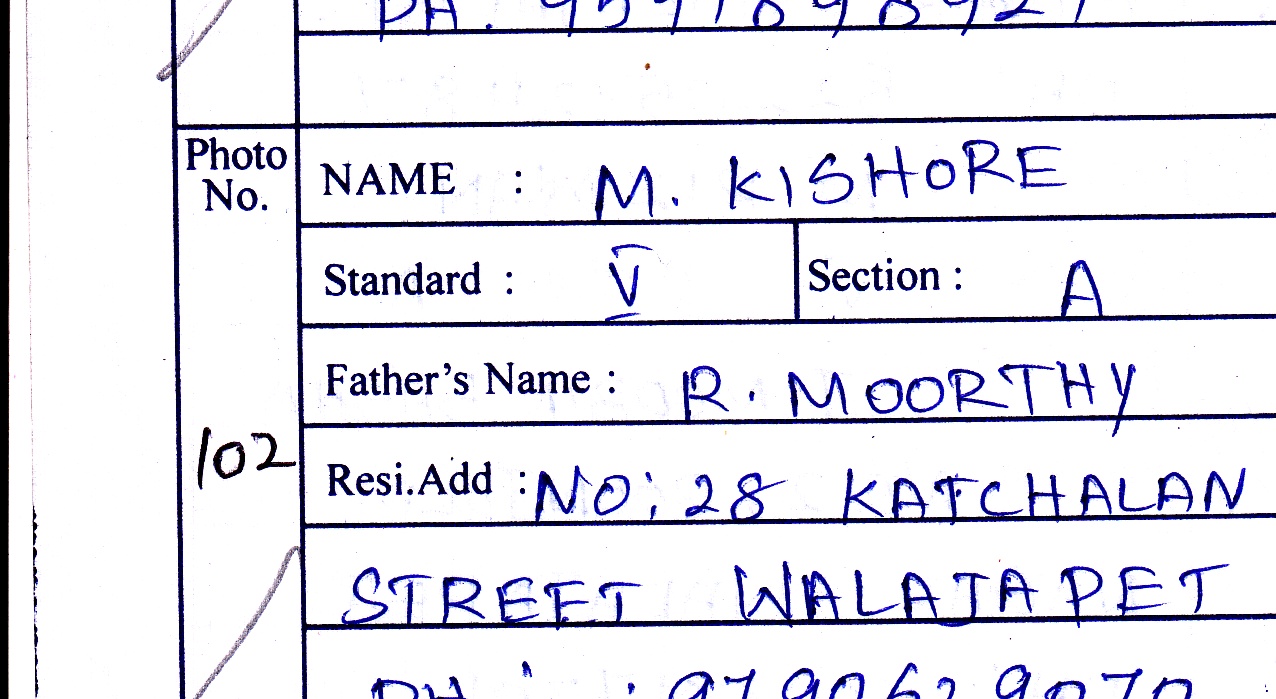 PH.
Photo No.
NAME : M. KISHORE
Standard : V Section : A
Father's Name : R. MOORTHY
102
Resi.Add : NO; 28 KATCHALAN
STREET WALAJAPET
PH :